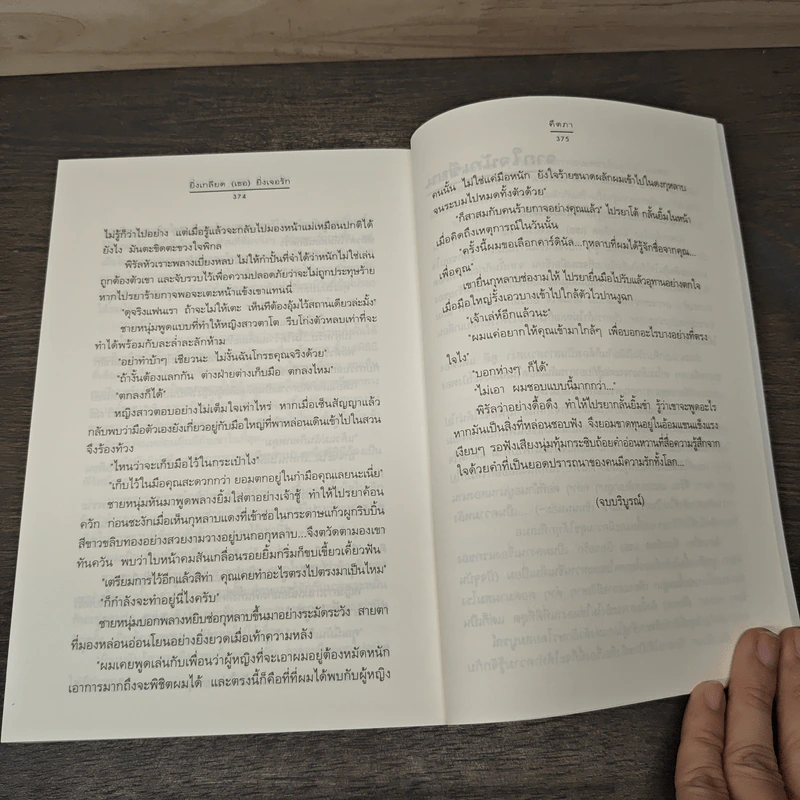 ยิ่งเกลียด (เธอ) ยิ่งเจอรัก
374
ไม่รู้ก็ว่าไปอย่าง แต่เมื่อรู้แล้วจะกลับไปมองหน้าแม่เหมือนปกติได้
ยังไง มันตะขิดตะขวงใจพิกล
พิรัลหัวเราะพลางเบี่ยงหลบ ไม่ให้กำปั้นที่จำได้ว่าหนักไม่ใช่เล่น
ถูกต้องตัวเขา และจับรวบไว้เพื่อความปลอดภัยว่าจะไม่ถูกประทุษร้าย
หากไปรยาร้ายกาจพอจะเตะหน้าแข้งเขาแทนนี่
"ดุจริงแฟนเรา ถ้าจะไม่ให้เตะ เห็นทีต้องอุ้มไว้สถานเดียวล่ะมั้ง"
ชายหนุ่มพูดแบบที่ทำให้หญิงสาวตาโต รีบโก่งตัวหลบเท่าที่จะ
ทำได้พร้อมกับละล่ำละลักห้าม
"อย่าทำบ้าๆ เชียวนะ ไม่งั้นฉันโกรธคุณจริงด้วย"
"ถ้างั้นต้องแลกกัน ต่างฝ่ายต่างเก็บมือ ตกลงไหม"
"ตกลงก็ได้"
หญิงสาวตอบอย่างไม่เต็มใจเท่าไหร่ หากเมื่อเซ็นสัญญาแล้ว
กลับพบว่ามือตัวเองยังเกี่ยวอยู่กับมือใหญ่ที่พาหล่อนเดินเข้าไปในสวน
จึงร้องท้วง
"ไหนว่าจะเก็บมือไว้ในกระเป๋าไง"
"เก็บไว้ในมือคุณสะดวกกว่า ยอมตกอยู่ในกำมือคุณเลยนะเนี่ย"
ชายหนุ่มหันมาพูดพลางยิ้มใส่ตาอย่างเจ้าชู้ ทำให้ไปรยาค้อน
ควัก ก่อนชะงักเมื่อเห็นกุหลาบแดงที่เข้าช่อในกระดาษแก้วผูกริบบิ้น
สีขาวขลิบทองอย่างสวยงามวางอยู่บนกอกุหลาบ...จึงตวัดตามองเขา
ทันควัน พบว่าใบหน้าคมสันเกลื่อนรอยยิ้มกริ่มก็ขบเขี้ยวเคี้ยวฟัน
"เตรียมการไว้อีกแล้วสิท่า คุณเคยทำอะไรตรงไปตรงมาเป็นไหม"
"ก็กำลังจะทำอยู่นี่ไงครับ"
ชายหนุ่มบอกพลางหยิบช่อกุหลาบขึ้นมาอย่างระมัดระวัง สายตา
ที่มองหล่อนอ่อนโยนอย่างยิ่งยวดเมื่อเท้าความหลัง
"ผมเคยพูดเล่นกับเพื่อนว่าผู้หญิงที่จะเอาผมอยู่ต้องหมัดหนัก
เอาการมากถึงจะพิชิตผมได้ และตรงนี้ก็คือที่ที่ผมได้พบกับผู้หญิง
คีตภา
375
คนนั้น ไม่ใช่แค่มือหนัก ยังใจร้ายขนาดผลักผมเข้าไปในดงกุหลาบ
จนระบมไปหมดทั้งตัวด้วย"
"ก็สาสมกับคนร้ายกาจอย่างคุณแล้ว" ไปรยาโต้ กลั้นยิ้มในหน้า
เมื่อคิดถึงเหตุการณ์ในวันนั้น
"ครั้งนี้ผมขอเลือกคาร์ดินัล...กุหลาบที่ผมได้รู้จักชื่อจากคุณ...
เพื่อคุณ"
เขายื่นกุหลาบช่องามให้ ไปรยายื่นมือไปรับแล้วอุทานอย่างตกใจ
เมื่อมือใหญ่รั้งเอวบางเข้าไปใกล้ตัวไวปานงูฉก
"เจ้าเล่ห์อีกแล้วนะ"
"ผมแค่อยากให้คุณเข้ามาใกล้ๆ เพื่อบอกอะไรบางอย่างที่ตรง
ใจไง"
"บอกห่างๆ ก็ได้"
"ไม่เอา ผมชอบแบบนี้มากกว่า..."
พิรัลว่าอย่างดื้อดึง ทำให้ไปรยากลั้นยิ้มขำ รู้ว่าเขาจะพูดอะไร
หากมันเป็นสิ่งที่หล่อนชอบฟัง จึงยอมขาดทุนอยู่ในอ้อมแขนแข็งแรง
เงียบๆ รอฟังเสียงนุ่มทุ้มกระซิบถ้อยคำอ่อนหวานที่สื่อความรู้สึกจาก
ใจด้วยคำที่เป็นยอดปรารถนาของคนมีความรักทั้งโลก...
(จบบริบูรณ์)